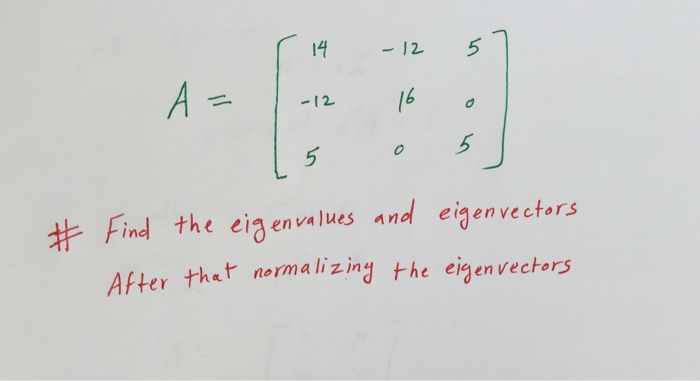 14 -12 5
A = -12 16 0
5 0 5
# Find the eigenvalues and eigenvectors
After that normalizing the eigenvectors